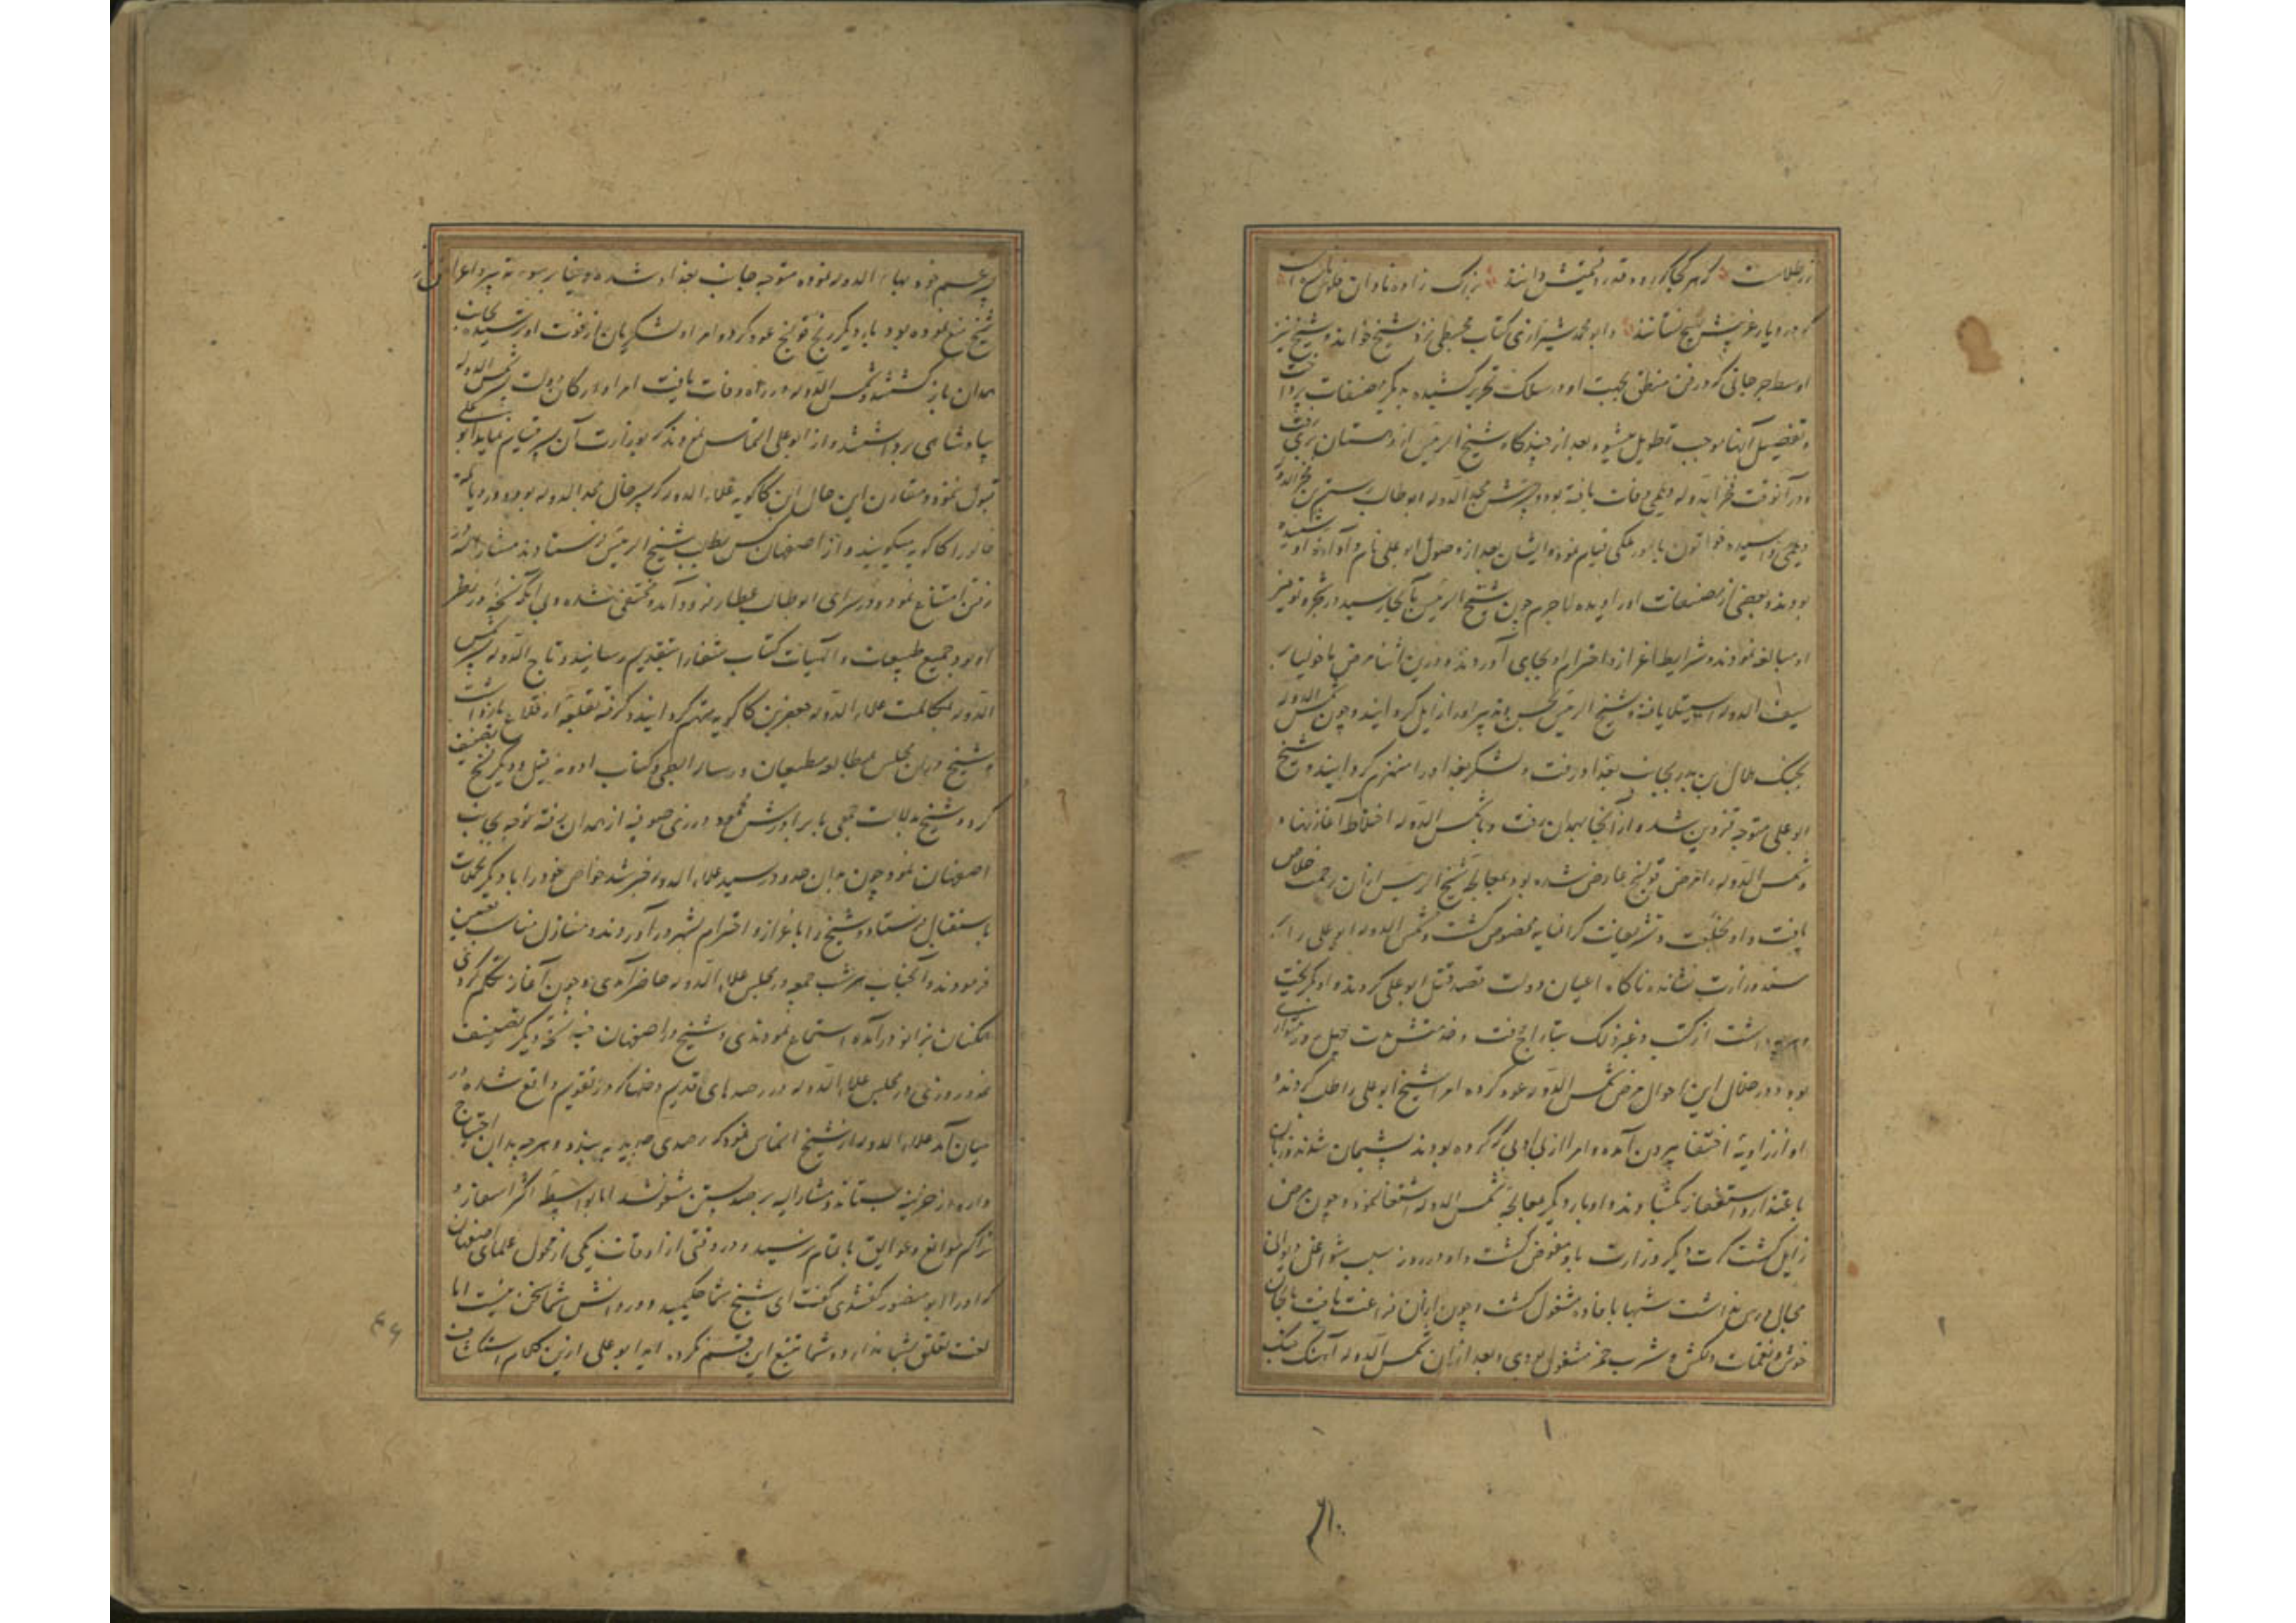 زر طلاست که هر کجا که رود قدر و قیمتش دانند بزرگ زاده نادان
که در دیار غریبش بهیچ نستانند و ابو محمد شیرازی کتاب مجسطی نزد شیخ خوانده و شیخ نیز
اوسط جرجانی که در فن منطق بجهت او در سلک تحریر کشیده بدیگر مصنفات پرداخت
و تفصیل آنها موجب تطویل میشود بعد از چندگاه شیخ الرئیس از دهستان بری رفت
و در آنوقت فخر الدوله دیلمی وفات یافته بود و پسرش مجد الدوله ابو طالب رستم بن فخر الدوله
دیلمی و سیده خاتون بامور ملکی قیام نموده و ایشان بعد از وصول ابو علی نام و آوازه او شنیده
بودند و بعضی از مصنفات او را دیده لاجرم چون شیخ الرئیس بآنجا رسید در
او مبالغه نمودند و شرایط اعزاز و احترام او بجای آوردند و درین اثنا مرض ماخولیا بر
سیف الدوله استیلا یافته و شیخ الرئیس بحسن تدبیر او را زایل گردانیده و چون شمس الدوله
بجنگ هلال بن بدر بجانب بغداد رفت و لشکر بغداد را منهزم گردانید و شیخ
ابو علی متوجه قزوین شده از آنجا بهمدان رفت و با شمس الدوله اختلاط آغاز نهاد
و شمس الدوله را مرض قولنج عارض شده بود بمعالجه شیخ الرئیس از آن زحمت خلاص
یافت و او بخلعت و تشریفات گرانمایه مخصوص گشت و شمس الدوله ابو علی را بر
مسند وزارت نشانده ناگاه اعیان دولت قصد قتل ابو علی کردند و او بگریخت
داشت از کتب و غیر ذلک بتاراج رفت و مدت چهل روز متواری
بود و در خلال این احوال مرض شمس الدوله عود کرده امرا شیخ ابو علی را طلب کردند و
او از زاویه اختفا بیرون آمده و امرا از بی ادبی که کرده بودند پشیمان شدند و زبان
باعتذار و استغفار بگشادند و او بار دیگر بمعالجه شمس الدوله اشتغال نمود و چون مرض
زایل گشت کرت دیگر وزارت باو مفوض گشت و او در روز بسبب شواغل دیوانی
مجال درس نداشت شبها بافاده مشغول گشت و چون از آن فراغت یافت بالحان
خوش و نغمات دلکش و شرب خمر مشغول بودی و بعد از آن شمس الدوله آهنگ جنگ
پسر عم خود بهاء الدوله نموده متوجه جانب بغداد شده
شیخ منع نموده بود بار دیگر رنج قولنج عود کرد و امرا و لشکریان از فوت او ترسیده بجانب
همدان باز گشتند و شمس الدوله در راه وفات یافت امرا و ارکان دولت پسر شمس الدوله
بپادشاهی برداشتند و از ابو علی التماس نمودند که بوزارت آن پسر قیام نماید ابو علی
قبول ننمود و مقارن این حال ابن کاکویه علاء الدوله که پسر خال مجد الدوله بود و در دیالمه
خالو را کاکویه میگویند و از اصفهان کس بطلب شیخ الرئیس فرستادند مشار الیه از
رفتن امتناع نمود و در سرای ابو طالب عطار فرود آمد و مختفی شده و بی آنکه نسخه در نظر
او بود جمیع طبیعیات و الهیات کتاب شفا را بتقدیم رسانید و تاج الدوله پسر شمس
الدوله بمکاتبت علاء الدوله جعفر بن کاکویه متهم گردانید و گرفته بقلعه از قلاع بازداشت
و شیخ در آن مجلس بمطالعه و کتاب ادویه و دیگر نسخ تصنیف
کرد و شیخ بدلالت جمعی با برادرش محمود در زی صوفیه از همدان رفته توجه بجانب
اصفهان نمود چون بدان حدود رسید علاء الدوله خبر شد خواص خود را با دیگر تجملات
باستقبال فرستاد و شیخ را باعزاز و احترام بشهر در آوردند و منازل مناسب تعیین
فرمودند و آنجناب هر شب جمعه در مجلس علاء الدوله حاضر آمدی و چون آغاز تکلم کردی
همکنان بزانو در آمده استماع نمودندی و شیخ در اصفهان چند نسخه دیگر تصنیف
نمود و روزی در مجلس علاء الدوله در رصدهای قدیم و خللها که در تقویم واقع شده در
میان آمد علاء الدوله از شیخ التماس نمود که رصدی جدید به بندد و هر چه بدان احتیاج
دارد از خزینه بستاند و مشار الیه برصد بستن مشغول شد اما بواسطه اکثر اسفار و
تراکم موانع و عوایق باتمام نرسید و در وقتی از اوقات یکی از فحول علمای اصفهان
که او را ابو منصور گفتندی گفت ای شیخ شما حکیمید و در دانش شما سخن نیست اما
لغت تعلق بشما ندارد و شما تتبع این قسم نکرده اید ابو علی ازین کلام استنکاف